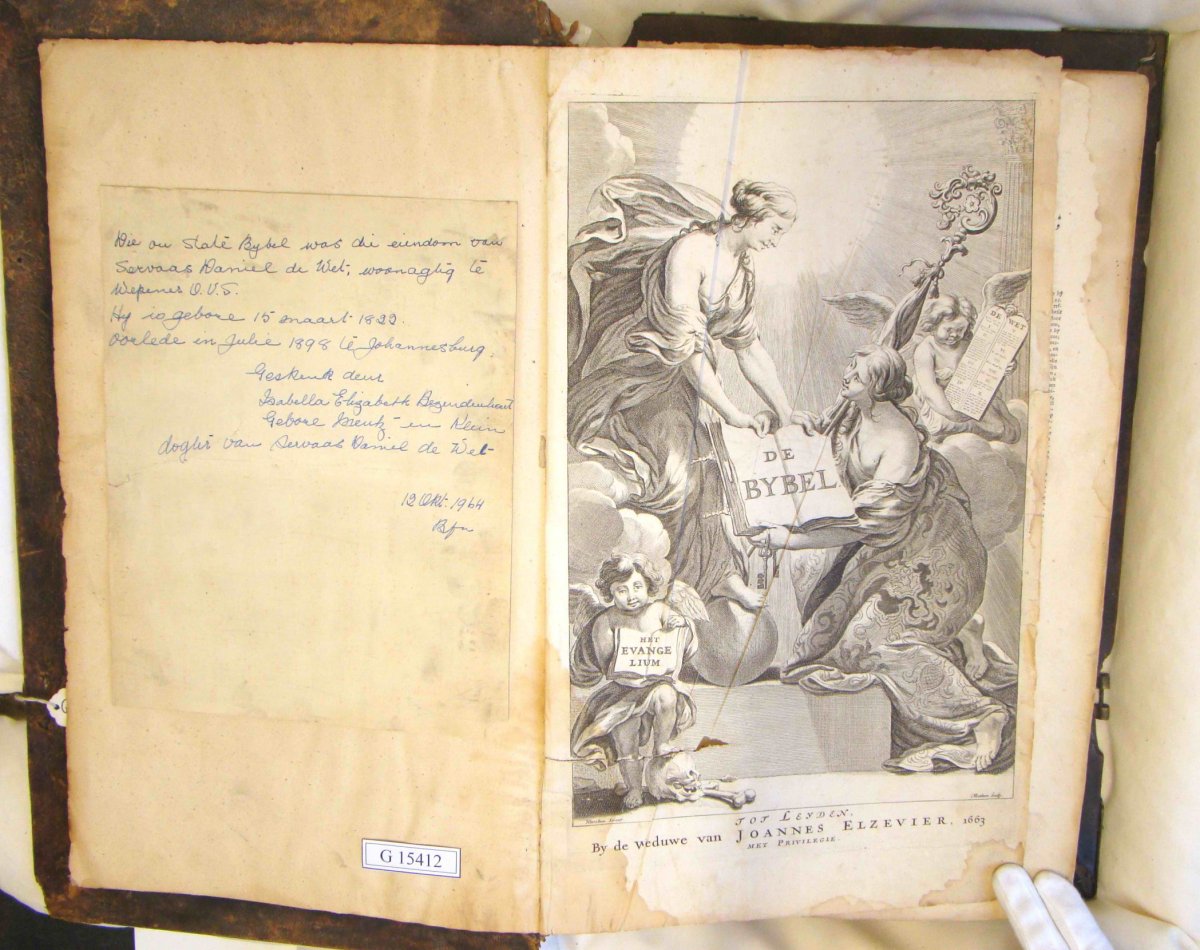 Die ou State Bybel was die eiendom van
Servaas Daniel de Wet, woonagtig te
Wepener O.V.S.
Hy is gebore 15 Maart 1822.
Oorlede in Julie 1898 te Johannesburg.
Geskenk deur
Isabella Elizabeth Bezuidenhout
Gebore en Klein
dogter van Servaas Daniel de Wet
12 Okt. 1964
Bfn
G 15412
DE WET
DE
BYBEL
HET
EVANGE
LIUM
TOT LEYDEN,
By de weduwe van JOANNES ELZEVIER, 1663
MET PRIVILEGIE.